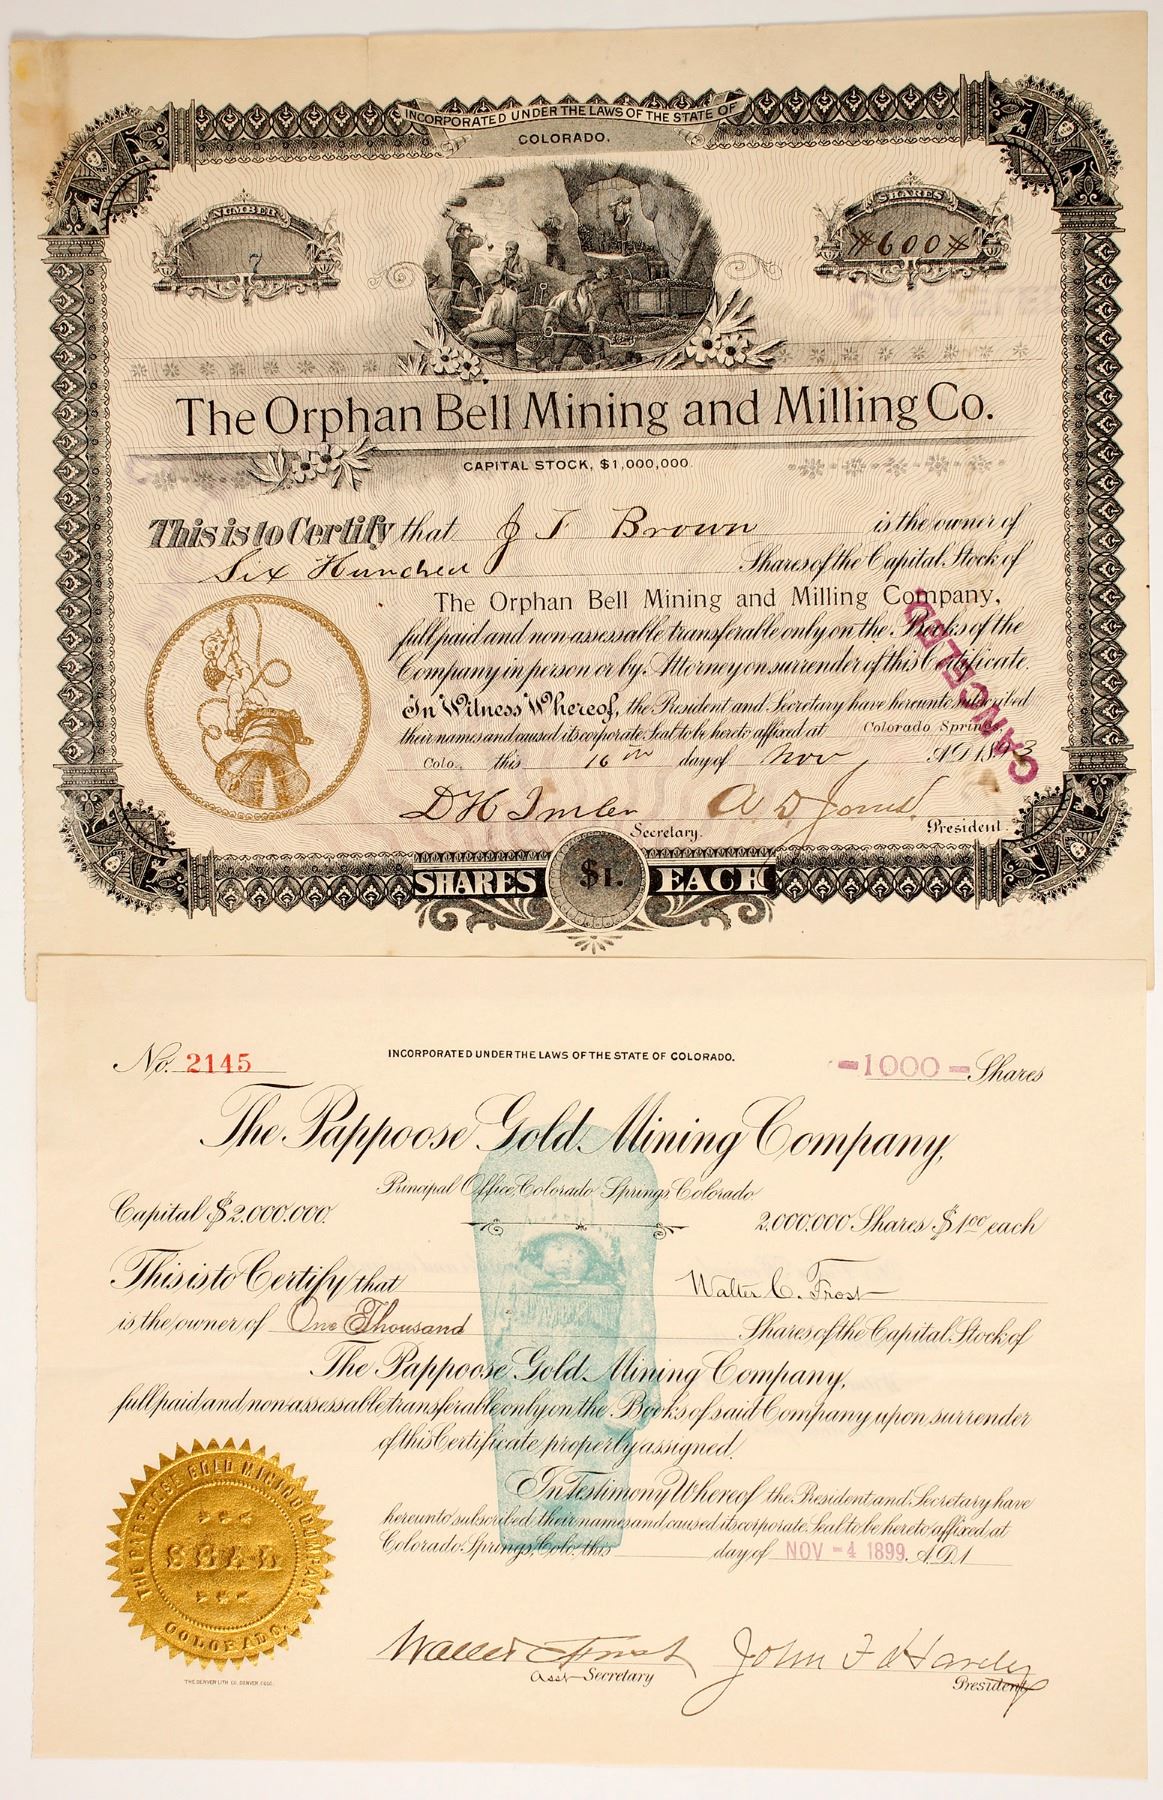 INCORPORATED UNDER THE LAWS OF THE STATE OF
COLORADO.
NUMBER
7
SHARES
*600*
The Orphan Bell Mining and Milling Co.
CAPITAL STOCK, $1,000,000.
This is to Certify that J T Brown is the owner of
Six Hundred Shares of the Capital Stock of
The Orphan Bell Mining and Milling Company,
full paid and non-assessable transferable only on the Books of the
Company in person or by Attorney on surrender of this Certificate.
In Witness Whereof, the President and Secretary have hereunto subscribed
their names and caused its corporate Seal to be hereto affixed at Colorado Springs,
Colo., this 16th day of Nov A.D. 1893
CANCELED
D H Imler A D Jones
Secretary. President.
SHARES $1. EACH
No. 2145
INCORPORATED UNDER THE LAWS OF THE STATE OF COLORADO.
-1000- Shares
The Pappoose Gold Mining Company,
Principal Office, Colorado Springs, Colorado
Capital $2,000,000. 2,000,000 Shares $1.00 each
This is to Certify that Walter C. Frost
is the owner of One Thousand Shares of the Capital Stock of
The Pappoose Gold Mining Company,
full paid and non-assessable, transferable only on the Books of said Company upon surrender
of this Certificate properly assigned.
In Testimony Whereof the President and Secretary have
hereunto subscribed their names and caused its corporate Seal to be hereto affixed at
Colorado Springs, Colo., this day of NOV -4 1899. A.D. 1
THE PAPPOOSE GOLD MINING COMPANY
SEAL
COLORADO.
Walter C Frost John F Hardy
Asst Secretary President
THE DENVER LITH. CO. DENVER, COLO.